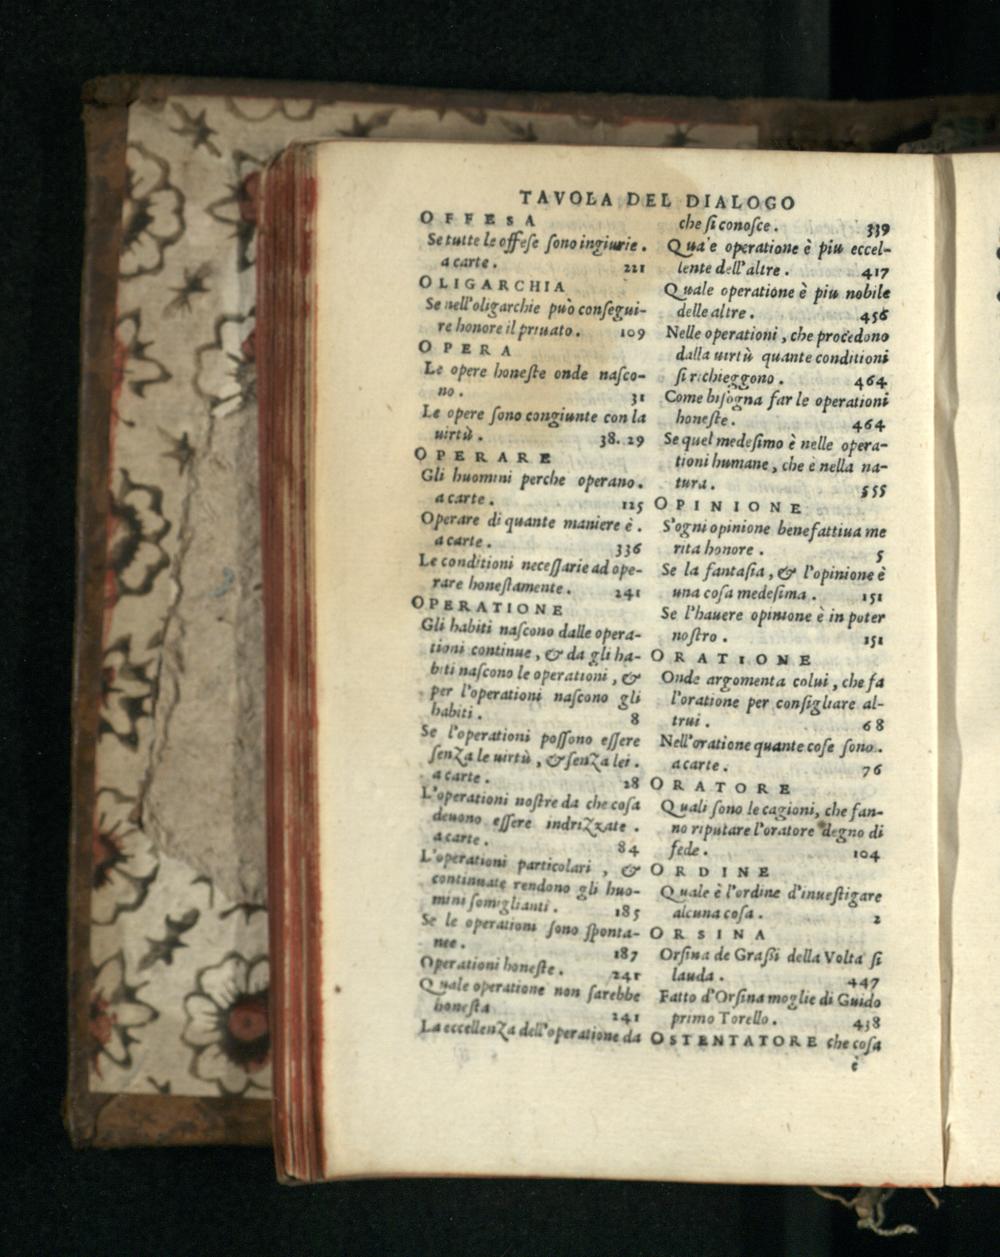 TAVOLA DEL DIALOGO
OFFESA
Se tutte le offese sono ingiurie.
a carte. 221
OLIGARCHIA
Se nell'oligarchie può consegui-
re honore il priuato. 109
OPERA
Le opere honeste onde nasco-
no. 31
Le opere sono congiunte con la
uirtù. 38. 29
OPERARE
Gli huomini perche operano.
a carte. 125
Operare di quante maniere è.
a carte. 336
Le conditioni necessarie ad ope-
rare honestamente. 241
OPERATIONE
Gli habiti nascono dalle opera-
tioni continue, & da gli ha-
biti nascono le operationi, &
per l'operationi nascono gli
habiti. 8
Se l'operationi possono essere
senza le uirtù, & senza lei.
a carte. 28
L'operationi nostre da che cosa
deuono essere indrizzate.
a carte. 84
L'operationi particolari, &
continuate rendono gli huo-
mini somiglianti. 185
Se le operationi sono sponta-
nee. 187
Operationi honeste. 241
Quale operatione non sarebbe
honesta 241
La eccellenza dell'operatione da
che si conosce. 339
Quale operatione è piu eccel-
lente dell'altre. 417
Quale operatione è piu nobile
delle altre. 456
Nelle operationi, che procedono
dalla uirtù quante conditioni
si richieggono. 464
Come bisogna far le operationi
honeste. 464
Se quel medesimo è nelle opera-
tioni humane, che è nella na-
tura. 555
OPINIONE
S'ogni opinione benefattiua me
rita honore. 5
Se la fantasia, & l'opinione è
una cosa medesima. 151
Se l'hauere opinione è in poter
nostro. 151
ORATIONE
Onde argomenta colui, che fa
l'oratione per consigliare al-
trui. 68
Nell'oratione quante cose sono.
a carte. 76
ORATORE
Quali sono le cagioni, che fan-
no riputare l'oratore degno di
fede. 104
ORDINE
Quale è l'ordine d'inuestigare
alcuna cosa. 2
ORSINA
Orsina de Grassi della Volta si
lauda. 447
Fatto d'Orsina moglie di Guido
primo Torello. 438
OSTENTATORE che cosa
è